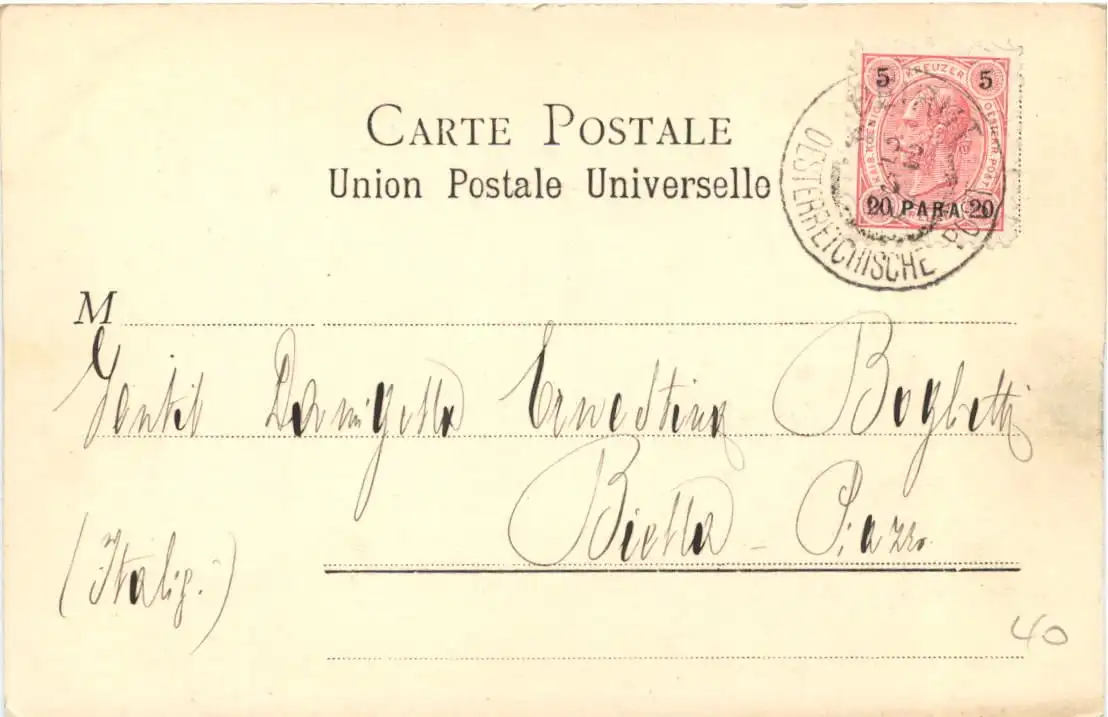 CARTE POSTALE
Union Postale Universelle
5 KREUZER 5
KAIS. KOENIGL. OESTERR. POST
20 PARA 20
OESTERREICHISCHE POST
M
Gentil Damigella Ernestina Boglietti
Biella - Piazzo
(Italia.)
40